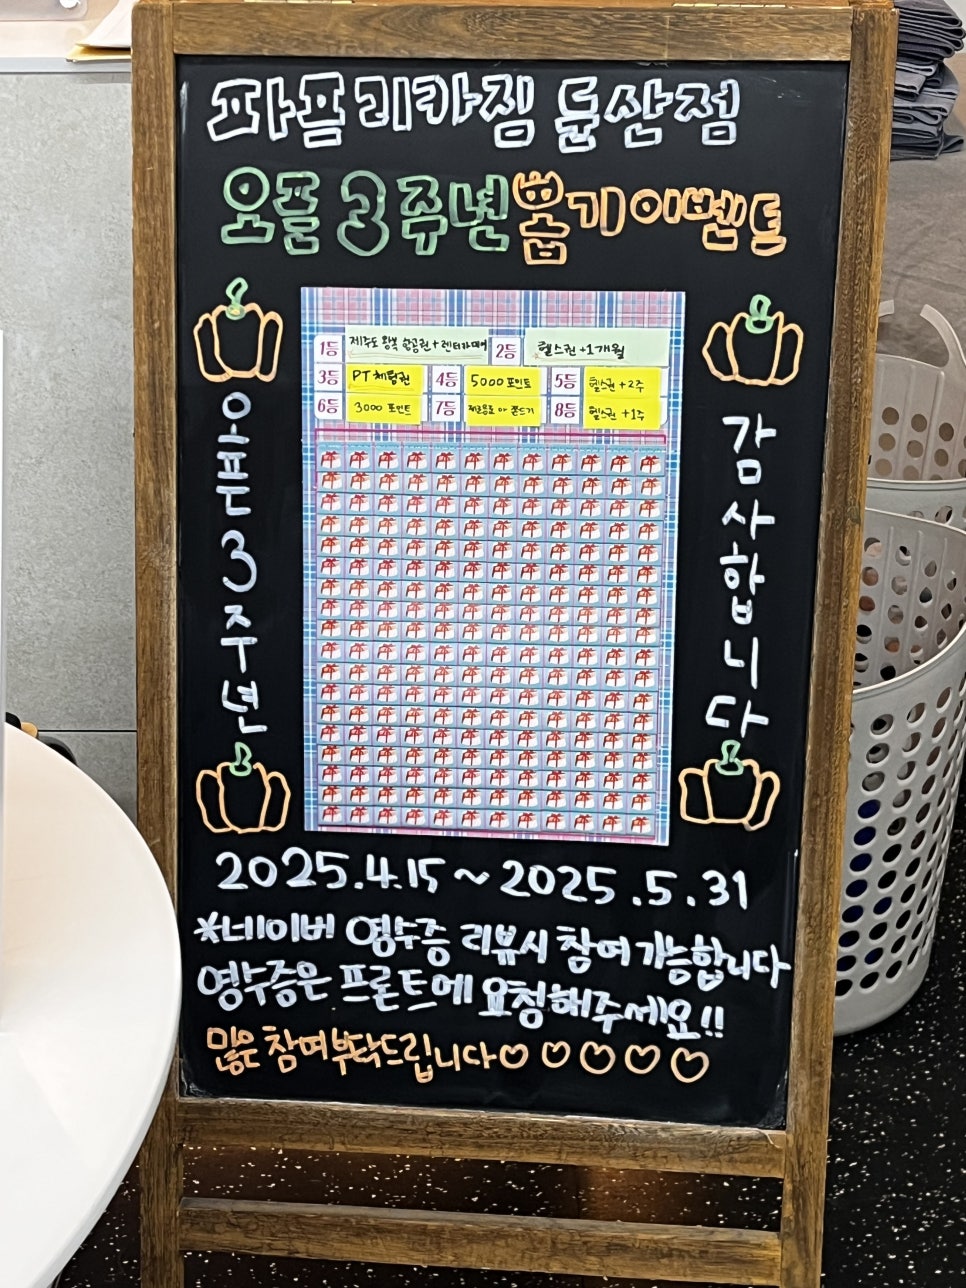 파프리카짐 둔산점
오픈 3주년 뽑기이벤트
1등 제주도 왕복 항공권+렌터카 2등 헬스권+1개월
3등 PT체험권 4등 5000포인트 5등 헬스권+2주
6등 3000포인트 7등 8등 헬스권+1주
오픈3주년
감사합니다
2025.4.15~2025.5.31
*네이버 영수증 리뷰시 참여가능합니다
영수증은 프론트에 요청해주세요!!
많은 참여부탁드립니다♡♡♡♡♡